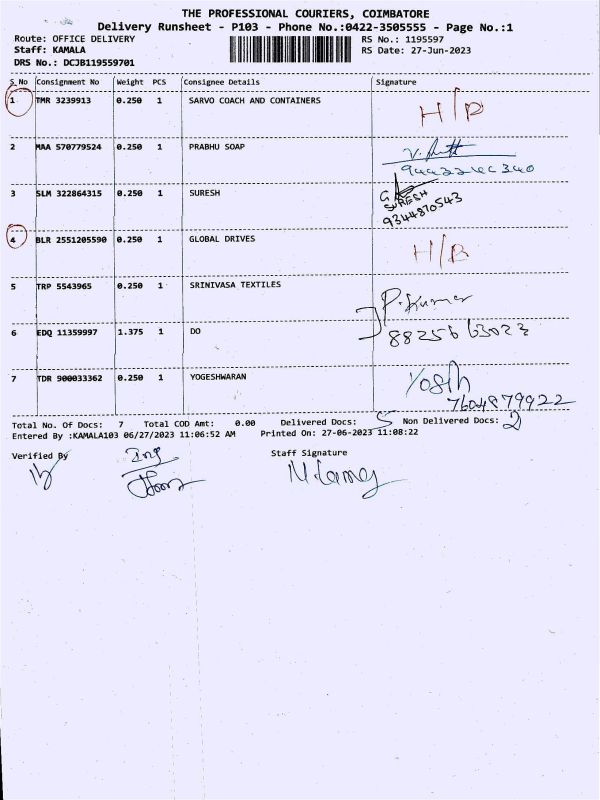 THE PROFESSIONAL COURIERS, COIMBATORE
Delivery Runsheet - P103 - Phone No.:0422-3505555 - Page No.:1
Route: OFFICE DELIVERY RS No.: 1195597
Staff: KAMALA RS Date: 27-Jun-2023
DRS No.: DCJB119559701
S.No Consignment No Weight PCS Consignee Details Signature
1 TMR 3239913 0.250 1 SARVO COACH AND CONTAINERS
2 MAA 570779524 0.250 1 PRABHU SOAP
3 SLM 322864315 0.250 1 SURESH
SURESH
9344870543
4 BLR 2551205590 0.250 1 GLOBAL DRIVES
5 TRP 5543965 0.250 1 SRINIVASA TEXTILES
P. Kumar
6 EDQ 11359997 1.375 1 DO
88256 63023
7 TDR 900033362 0.250 1 YOGESHWARAN
7604879922
Total No. Of Docs: 7 Total COD Amt: 0.00 Delivered Docs: 5 Non Delivered Docs: 2
Entered By :KAMALA103 06/27/2023 11:06:52 AM Printed On: 27-06-2023 11:08:22
Verified By Staff Signature